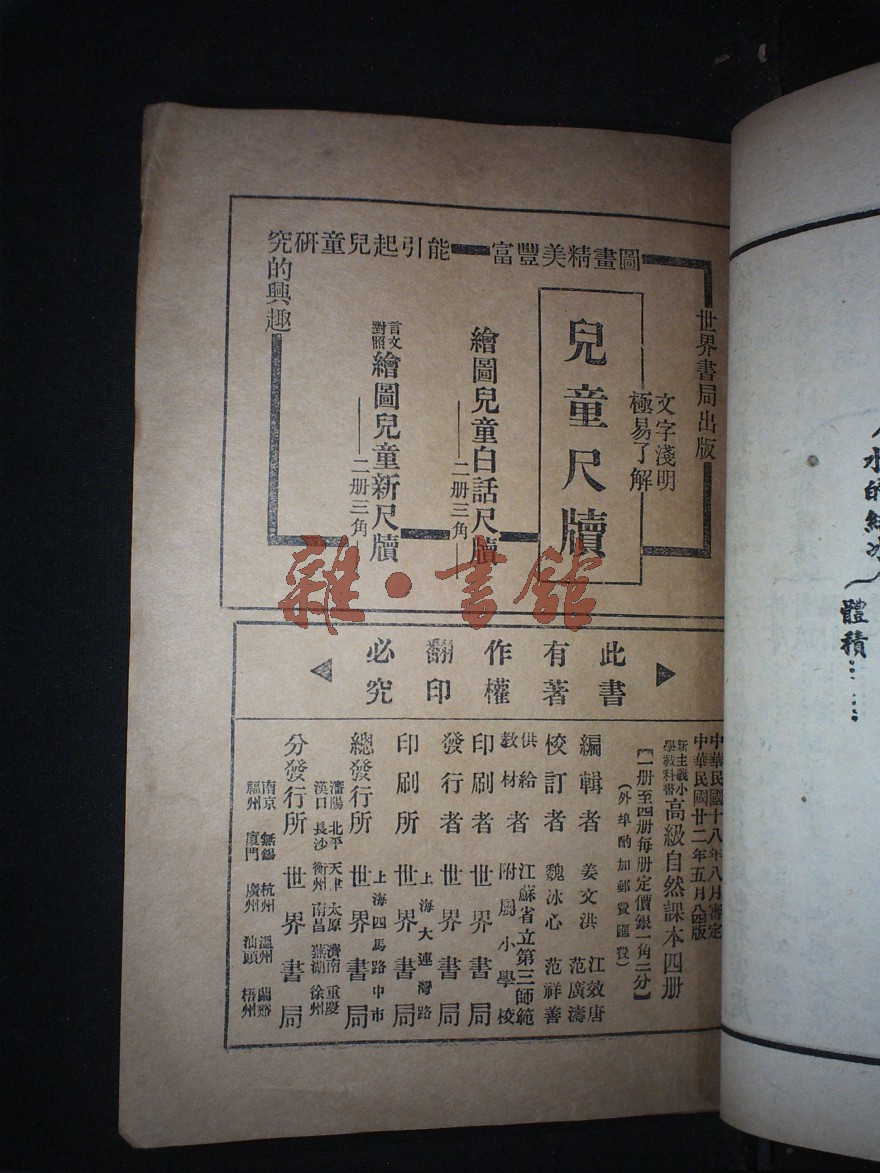 世界書局出版
圖畫精美豐富
能引起兒童研究的興趣
文字淺明
極易了解
兒童尺牘
繪圖兒童白話尺牘
二册三角
言文對照
繪圖兒童新尺牘
二册三角
此書有著作權翻印必究
中華民國十八年八月審定
中華民國廿二年五月八四版
新主義小學教科書
高級自然課本四册
【一册至四册每册定價銀一角二分】
(外埠酌加郵費匯費)
編輯者 姜文洪 江效唐 范廣濤
校訂者 魏冰心 范祥善
供給教材者 江蘇省立第三師範附屬小學校
印刷者 世界書局
發行者 世界書局
印刷所 上海大連灣路 世界書局
總發行所 上海四馬路中市 世界書局
分發行所 世界書局
瀋陽 北平 天津 太原 濟南 重慶
漢口 長沙 衡州 南昌 蕪湖 徐州
南京 無錫 杭州 溫州 蘭谿
福州 廈門 廣州 汕頭 梧州
水的結冰
體積……
雜·書館